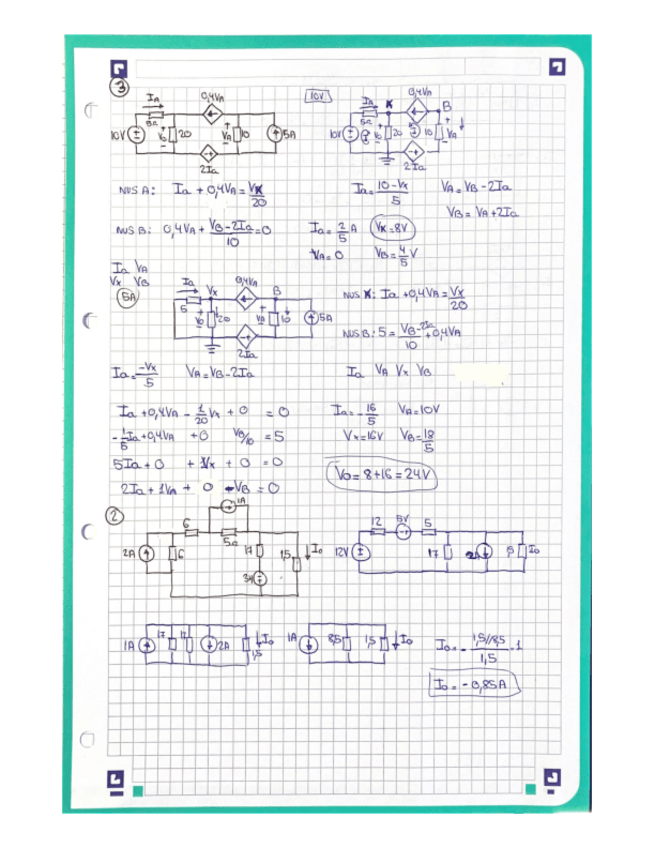 ③
Ia 0,4VA
5Ω
10V Vo 20 VA 10 5A
2Ia
10V
Ia x 0,4VA B
5Ω
10V Vo 20 10 VA
2Ia
NUS A: Ia + 0,4VA = Vx/20
Ia = 10-Vx/5 VA = VB - 2Ia
VB = VA + 2Ia
NUS B: 0,4VA + VB-2Ia/10 = 0
Ia = 2/5 A Vx = 8V
VA = 0 VB = 4/5 V
Ia VA
Vx VB
5A
Ia Vx 0,4VA B
5 Vo 20 VA 10 5A
2Ia
NUS X: Ia + 0,4VA = Vx/20
NUS B: 5 = VB-2Ia/10 + 0,4VA
Ia = -Vx/5 VA = VB - 2Ia
Ia VA Vx VB
Ia + 0,4VA - 1/20 Vx + 0 = 0
-1/5 Ia + 0,4VA + 0 VB/10 = 5
5Ia + 0 + Vx + 0 = 0
2Ia + 1VA + 0 - VB = 0
Ia = -16/5 VA = 10V
Vx = 16V VB = 18/5
Vo = 8 + 16 = 24V
②
1A
6 5Ω
2A 6 17 1,5 Io
12 5V 5
12V 17 2A 1,5 Io
1A 17 17 2A Io
1,5
1A 8,5 1,5 Io
Io = - 1,5//8,5/1,5 · 1
Io = -0,85A